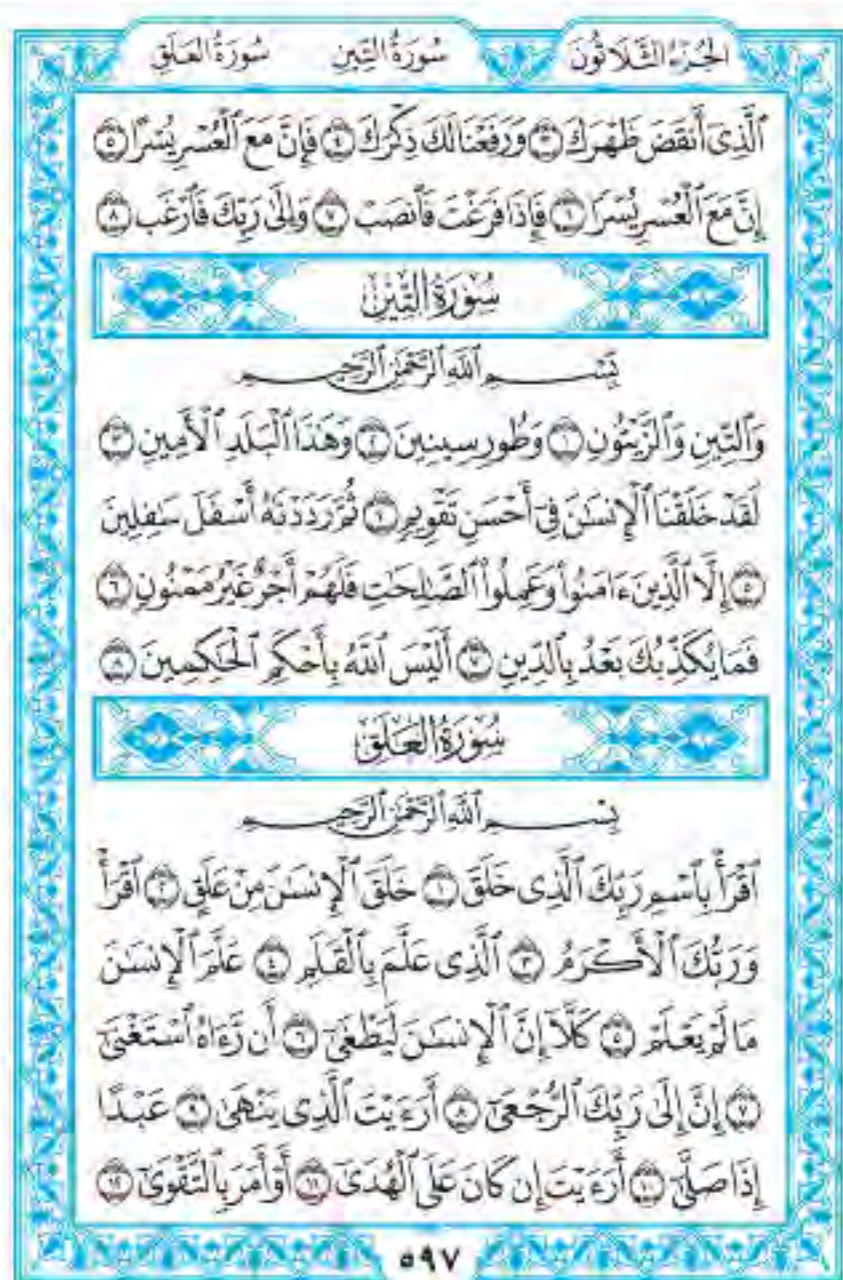 الجزء الثلاثون سورة التين سورة العلق
ٱلَّذِىٓ أَنقَضَ ظَهْرَكَ ٣ وَرَفَعْنَا لَكَ ذِكْرَكَ ٤ فَإِنَّ مَعَ ٱلْعُسْرِ يُسْرًا ٥
إِنَّ مَعَ ٱلْعُسْرِ يُسْرًا ٦ فَإِذَا فَرَغْتَ فَٱنصَبْ ٧ وَإِلَىٰ رَبِّكَ فَٱرْغَب ٨
سُورَةُ التِّينِ
بِسْمِ ٱللَّهِ ٱلرَّحْمَٰنِ ٱلرَّحِيمِ
وَٱلتِّينِ وَٱلزَّيْتُونِ ١ وَطُورِ سِينِينَ ٢ وَهَٰذَا ٱلْبَلَدِ ٱلْأَمِينِ ٣
لَقَدْ خَلَقْنَا ٱلْإِنسَٰنَ فِىٓ أَحْسَنِ تَقْوِيمٍ ٤ ثُمَّ رَدَدْنَٰهُ أَسْفَلَ سَٰفِلِينَ
٥ إِلَّا ٱلَّذِينَ ءَامَنُوا۟ وَعَمِلُوا۟ ٱلصَّٰلِحَٰتِ فَلَهُمْ أَجْرٌ غَيْرُ مَمْنُونٍ ٦
فَمَا يُكَذِّبُكَ بَعْدُ بِٱلدِّينِ ٧ أَلَيْسَ ٱللَّهُ بِأَحْكَمِ ٱلْحَٰكِمِينَ ٨
سُورَةُ العَلَقِ
بِسْمِ ٱللَّهِ ٱلرَّحْمَٰنِ ٱلرَّحِيمِ
ٱقْرَأْ بِٱسْمِ رَبِّكَ ٱلَّذِى خَلَقَ ١ خَلَقَ ٱلْإِنسَٰنَ مِنْ عَلَقٍ ٢ ٱقْرَأْ
وَرَبُّكَ ٱلْأَكْرَمُ ٣ ٱلَّذِى عَلَّمَ بِٱلْقَلَمِ ٤ عَلَّمَ ٱلْإِنسَٰنَ
مَا لَمْ يَعْلَمْ ٥ كَلَّآ إِنَّ ٱلْإِنسَٰنَ لَيَطْغَىٰٓ ٦ أَن رَّءَاهُ ٱسْتَغْنَىٰٓ
٧ إِنَّ إِلَىٰ رَبِّكَ ٱلرُّجْعَىٰٓ ٨ أَرَءَيْتَ ٱلَّذِى يَنْهَىٰ ٩ عَبْدًا
إِذَا صَلَّىٰٓ ١٠ أَرَءَيْتَ إِن كَانَ عَلَى ٱلْهُدَىٰٓ ١١ أَوْ أَمَرَ بِٱلتَّقْوَىٰٓ ١٢
٥٩٧